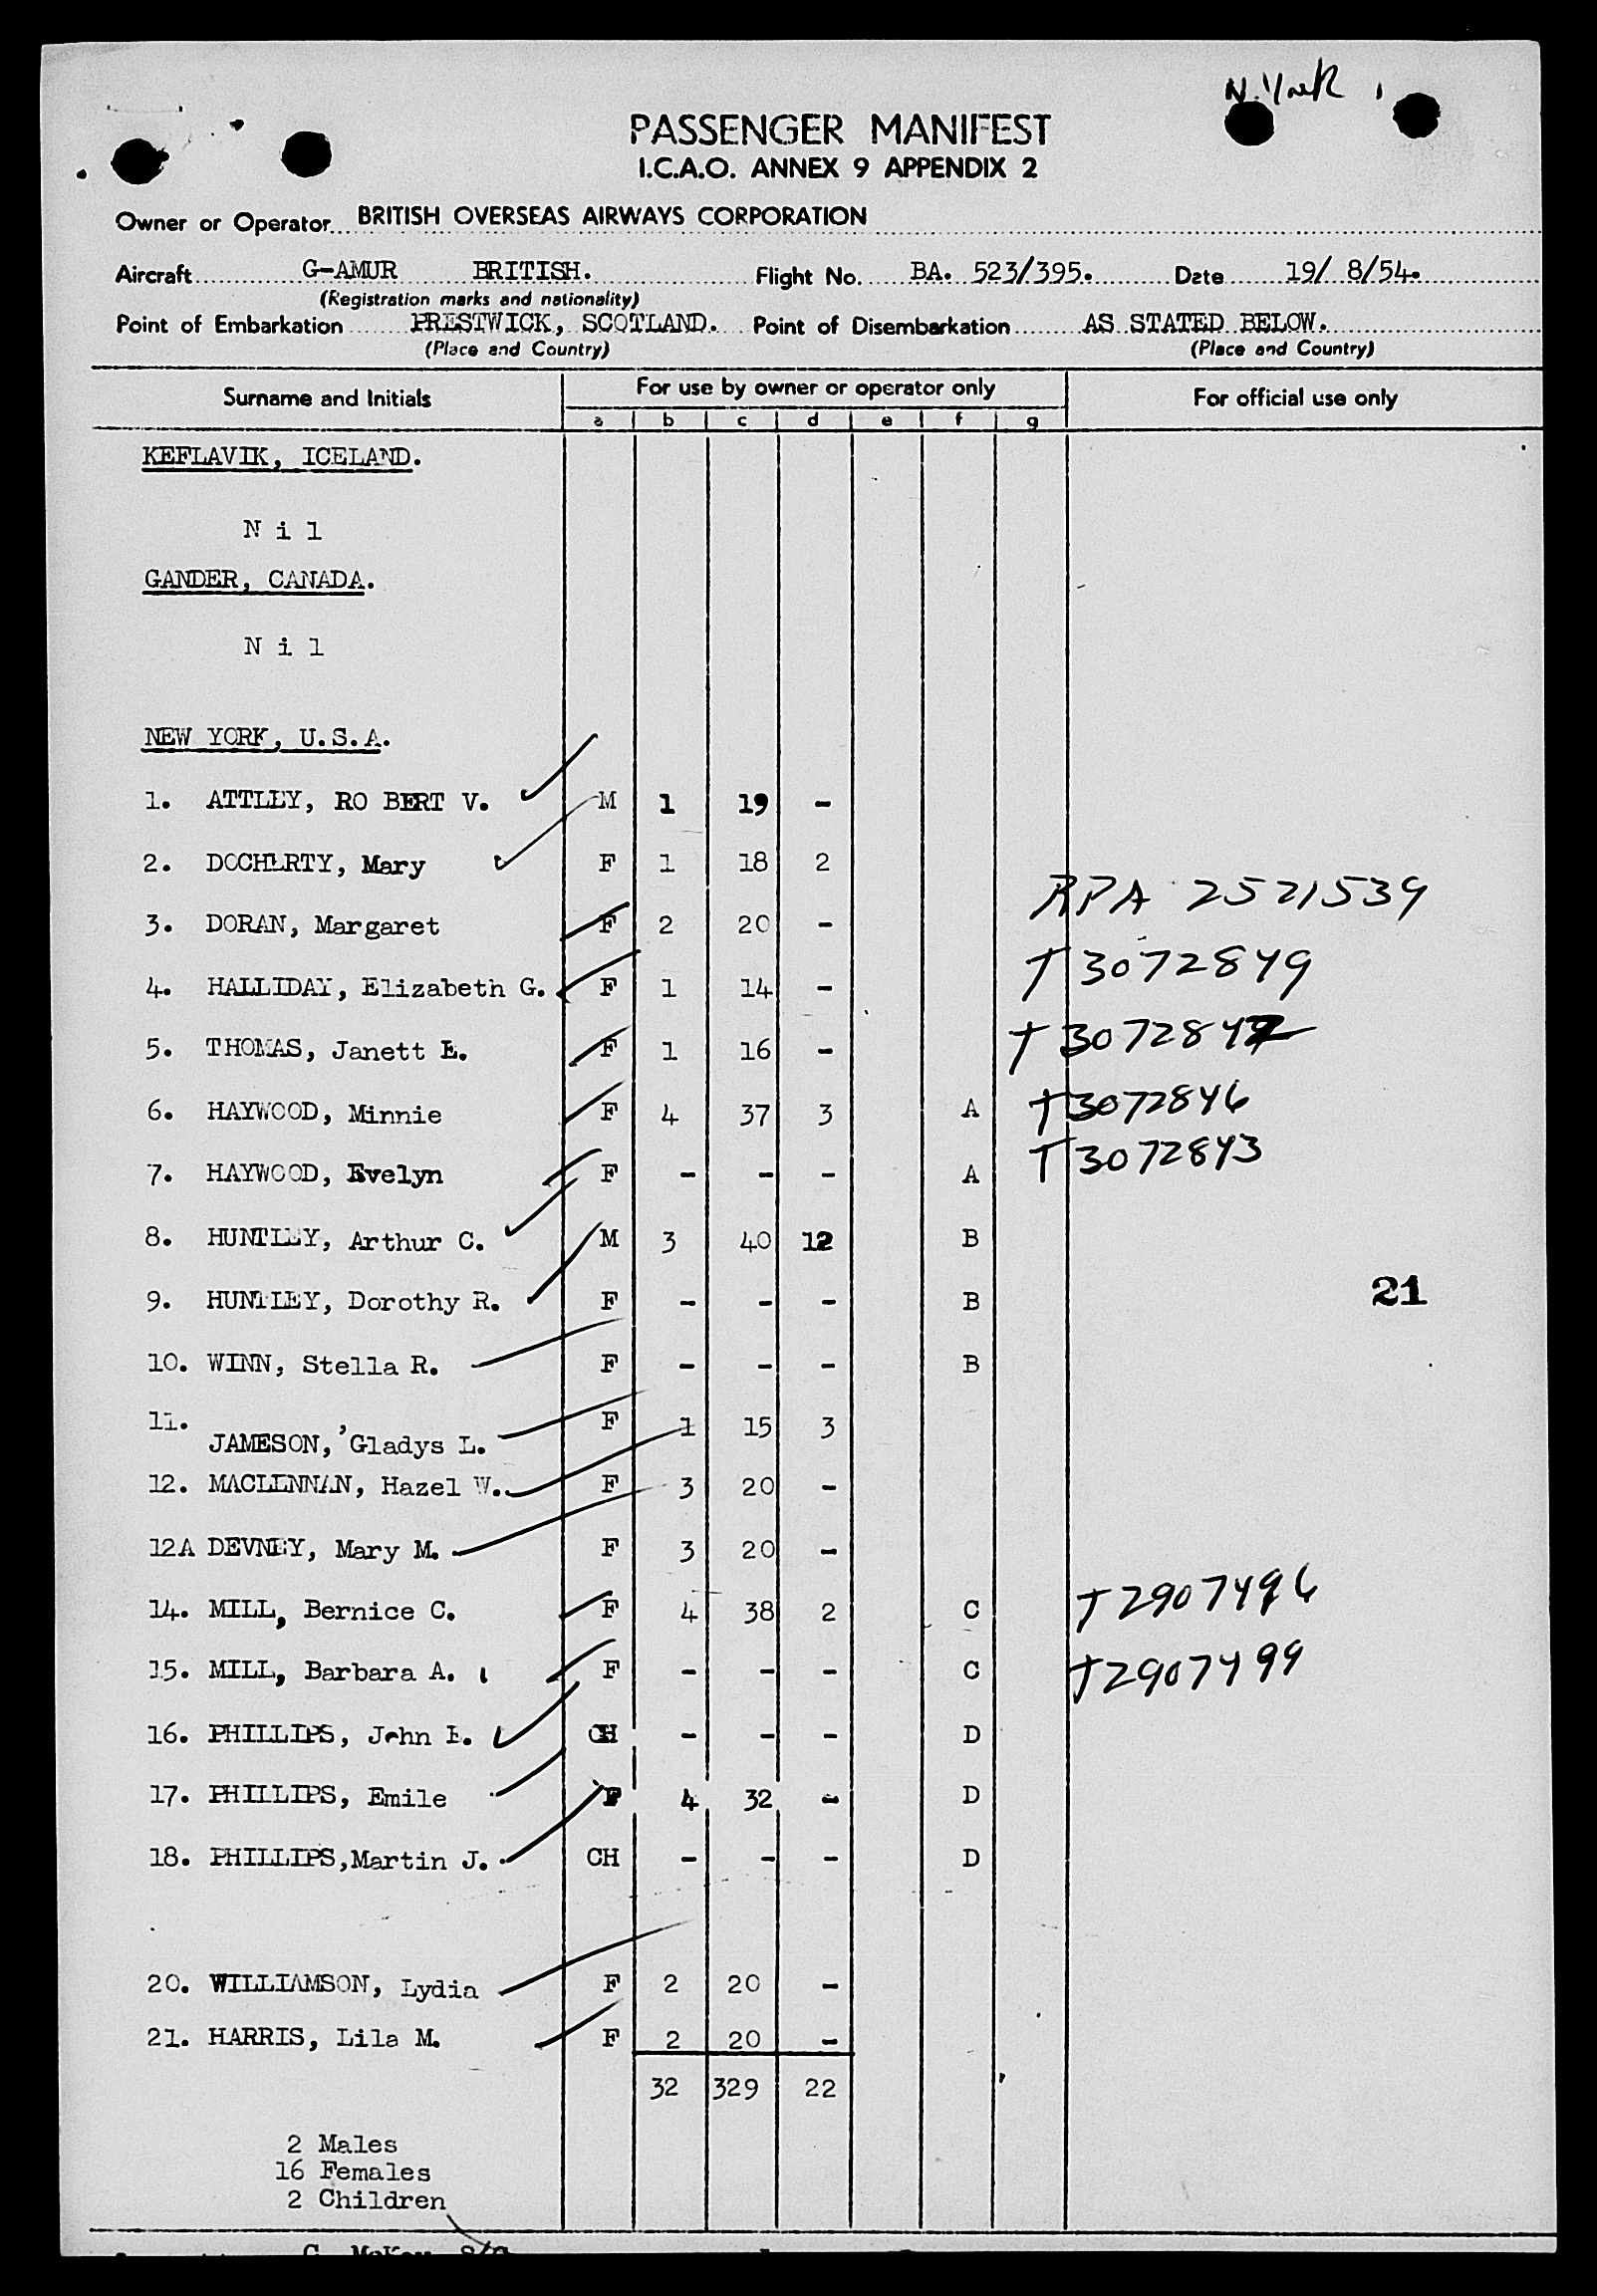 N. York
PASSENGER MANIFEST
I.C.A.O. ANNEX 9 APPENDIX 2
Owner or Operator BRITISH OVERSEAS AIRWAYS CORPORATION
Aircraft G-AMUR BRITISH. Flight No. BA. 523/395. Date 19/ 8/54.
(Registration marks and nationality)
Point of Embarkation PRESTWICK, SCOTLAND. Point of Disembarkation AS STATED BELOW.
(Place and Country) (Place and Country)
Surname and Initials For use by owner or operator only For official use only
a b c d e f g
KEFLAVIK, ICELAND.
N i l
GANDER, CANADA.
N i l
NEW YORK, U.S.A.
1. ATTLEY, RO BERT V. M 1 19 -
2. DOCHERTY, Mary F 1 18 2
RPA 2521539
3. DORAN, Margaret F 2 20 -
T 3072849
4. HALLIDAY, Elizabeth G. F 1 14 -
5. THOMAS, Janett E. F 1 16 - T
6. HAYWOOD, Minnie F 4 37 3 A T3072846
7. HAYWOOD, Evelyn F - - - A T3072843
8. HUNTLEY, Arthur C. M 3 40 12 B
9. HUNTLEY, Dorothy R. F - - - B 21
10. WINN, Stella R. F - - - B
11. JAMESON, Gladys L. F 1 15 3
12. MACLENNAN, Hazel W. F 3 20 -
12A DEVNEY, Mary M. F 3 20 -
14. MILL, Bernice C. F 4 38 2 C T2907496
15. MILL, Barbara A. F - - - C T2907499
16. PHILLIPS, John E. CH - - - D
17. PHILLIPS, Emile F 4 32 - D
18. PHILLIPS,Martin J. CH - - - D
20. WILLIAMSON, Lydia F 2 20 -
21. HARRIS, Lila M. F 2 20 -
32 329 22
2 Males
16 Females
2 Children